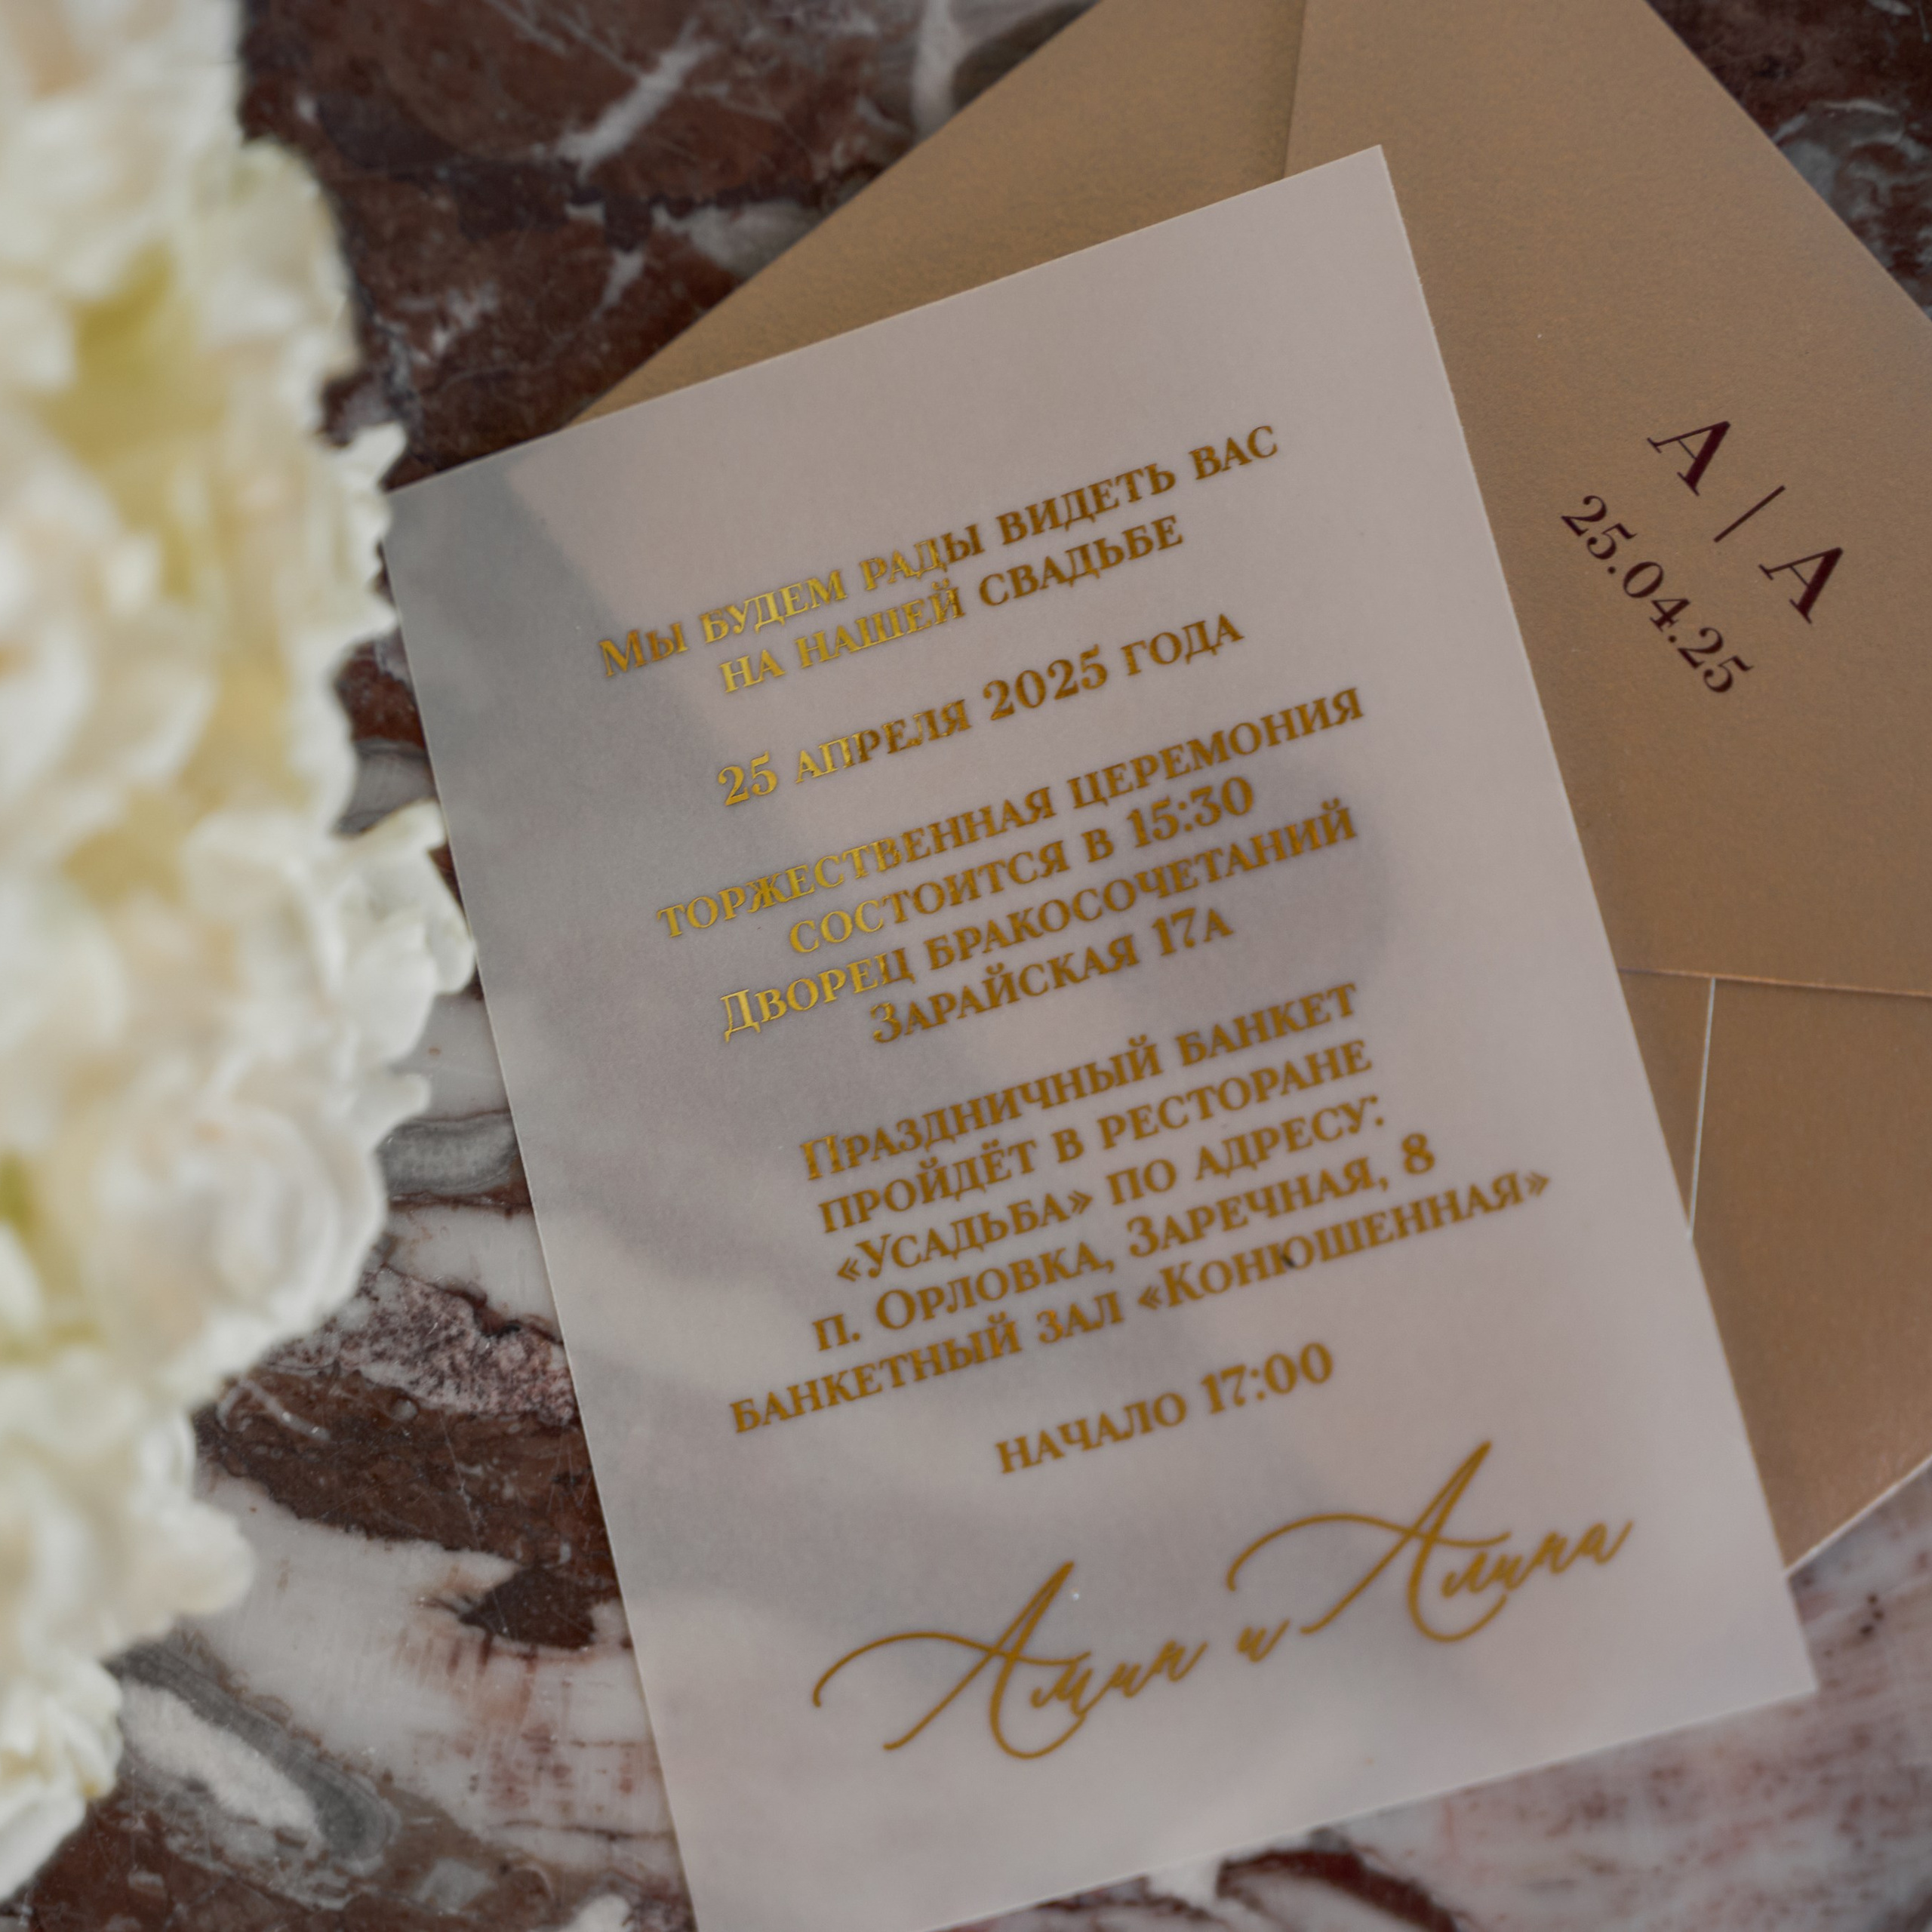 Мы будем рады видеть вас
на нашей свадьбе
25 апреля 2025 года
торжественная церемония
состоится в 15:30
Дворец бракосочетаний
Зарайская 17а
Праздничный банкет
пройдёт в ресторане
«Усадьба» по адресу:
п. Орловка, Заречная, 8
банкетный зал «Конюшенная»
начало 17:00
Амин и Амина
А | А
25.04.25